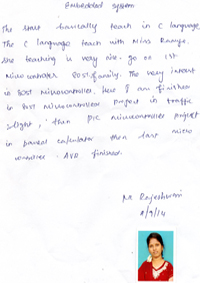 Embedded system
The start basically teach in C language
The C language teach with Miss Ramya.
She teaching is very nice. go on 1st
Microcontroller 8051 family. The very intrest
in 8051 Microcontroller. but I am finished
in 8051 microcontroller project in traffic
light, then PIC microcontroller project
in calculator then last micro
controller - AVR finished.
M. Rajeshwari
8/9/14